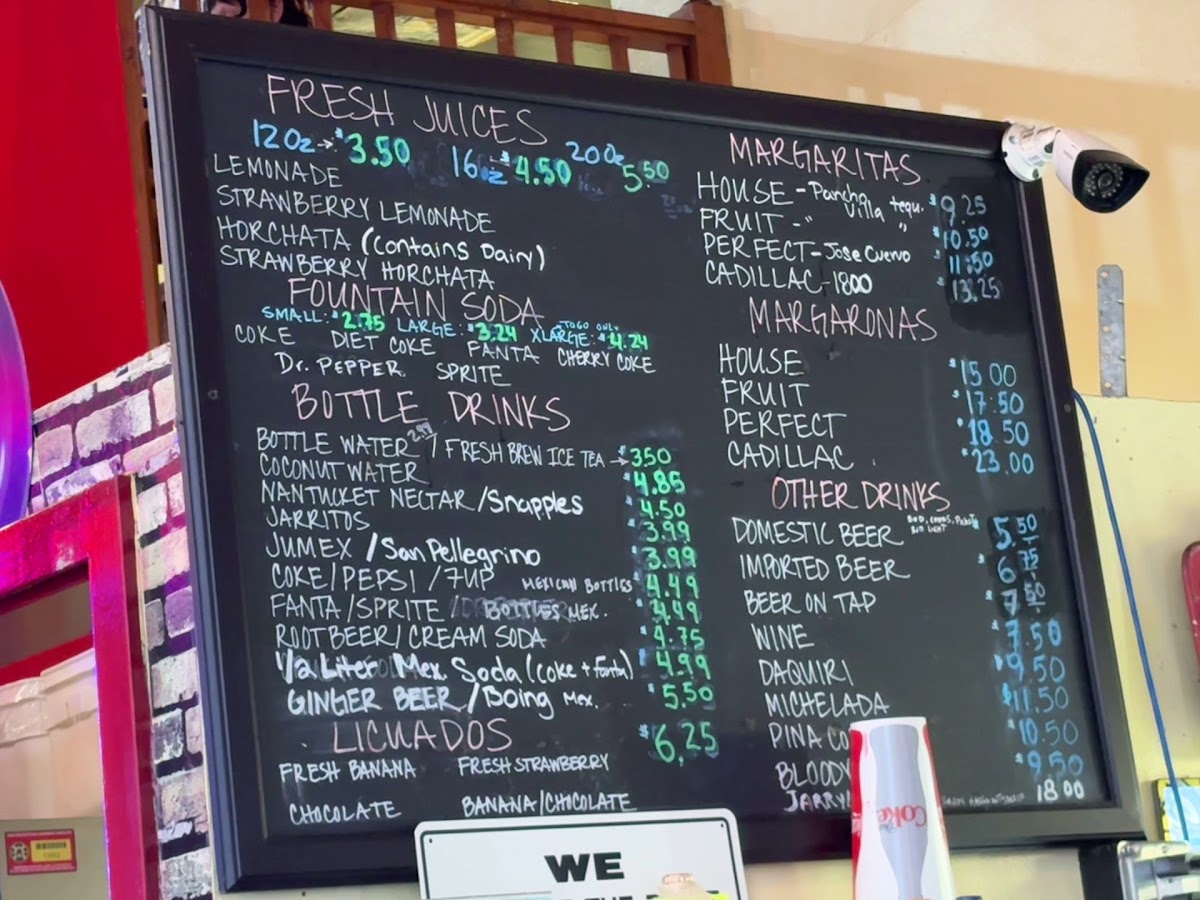 FRESH JUICES
12oz → $3.50 16oz $4.50 20oz 5.50
LEMONADE
STRAWBERRY LEMONADE
HORCHATA (Contains Dairy)
STRAWBERRY HORCHATA
FOUNTAIN SODA
SMALL: $2.75 LARGE: $3.24 XLARGE: -TO GO ONLY $4.24
COKE DIET COKE FANTA CHERRY COKE
Dr. PEPPER. SPRITE
BOTTLE DRINKS
BOTTLE WATER 2.99 / FRESH BREW ICE TEA → $3.50
COCONUT WATER $4.85
NANTUCKET NECTAR / Snapples 4.50
JARRITOS 3.99
JUMEX / San Pellegrino 3.99
COKE / PEPSI / 7UP MEXICAN BOTTLES 4.49
FANTA / SPRITE BOTTLES MEX. 4.49
ROOT BEER / CREAM SODA 4.75
1/2 Liter Mex. Soda (Coke + Fanta) 4.99
GINGER BEER / Boing Mex. $5.50
LICUADOS $6.25
FRESH BANANA FRESH STRAWBERRY
CHOCOLATE BANANA/CHOCOLATE
MARGARITAS
HOUSE - Pancho Villa tequ. $9.25
FRUIT - " " $10.50
PERFECT - Jose Cuervo 11.50
CADILLAC - 1800 13.25
MARGARONAS
HOUSE $15.00
FRUIT $17.50
PERFECT $18.50
CADILLAC $23.00
OTHER DRINKS
DOMESTIC BEER 5.50
IMPORTED BEER 6.75
BEER ON TAP 7.50
WINE 7.50
DAQUIRI 9.50
MICHELADA $11.50
PINA CO 10.50
BLOODY $9.50
JARRY 18.00
Coke
WE